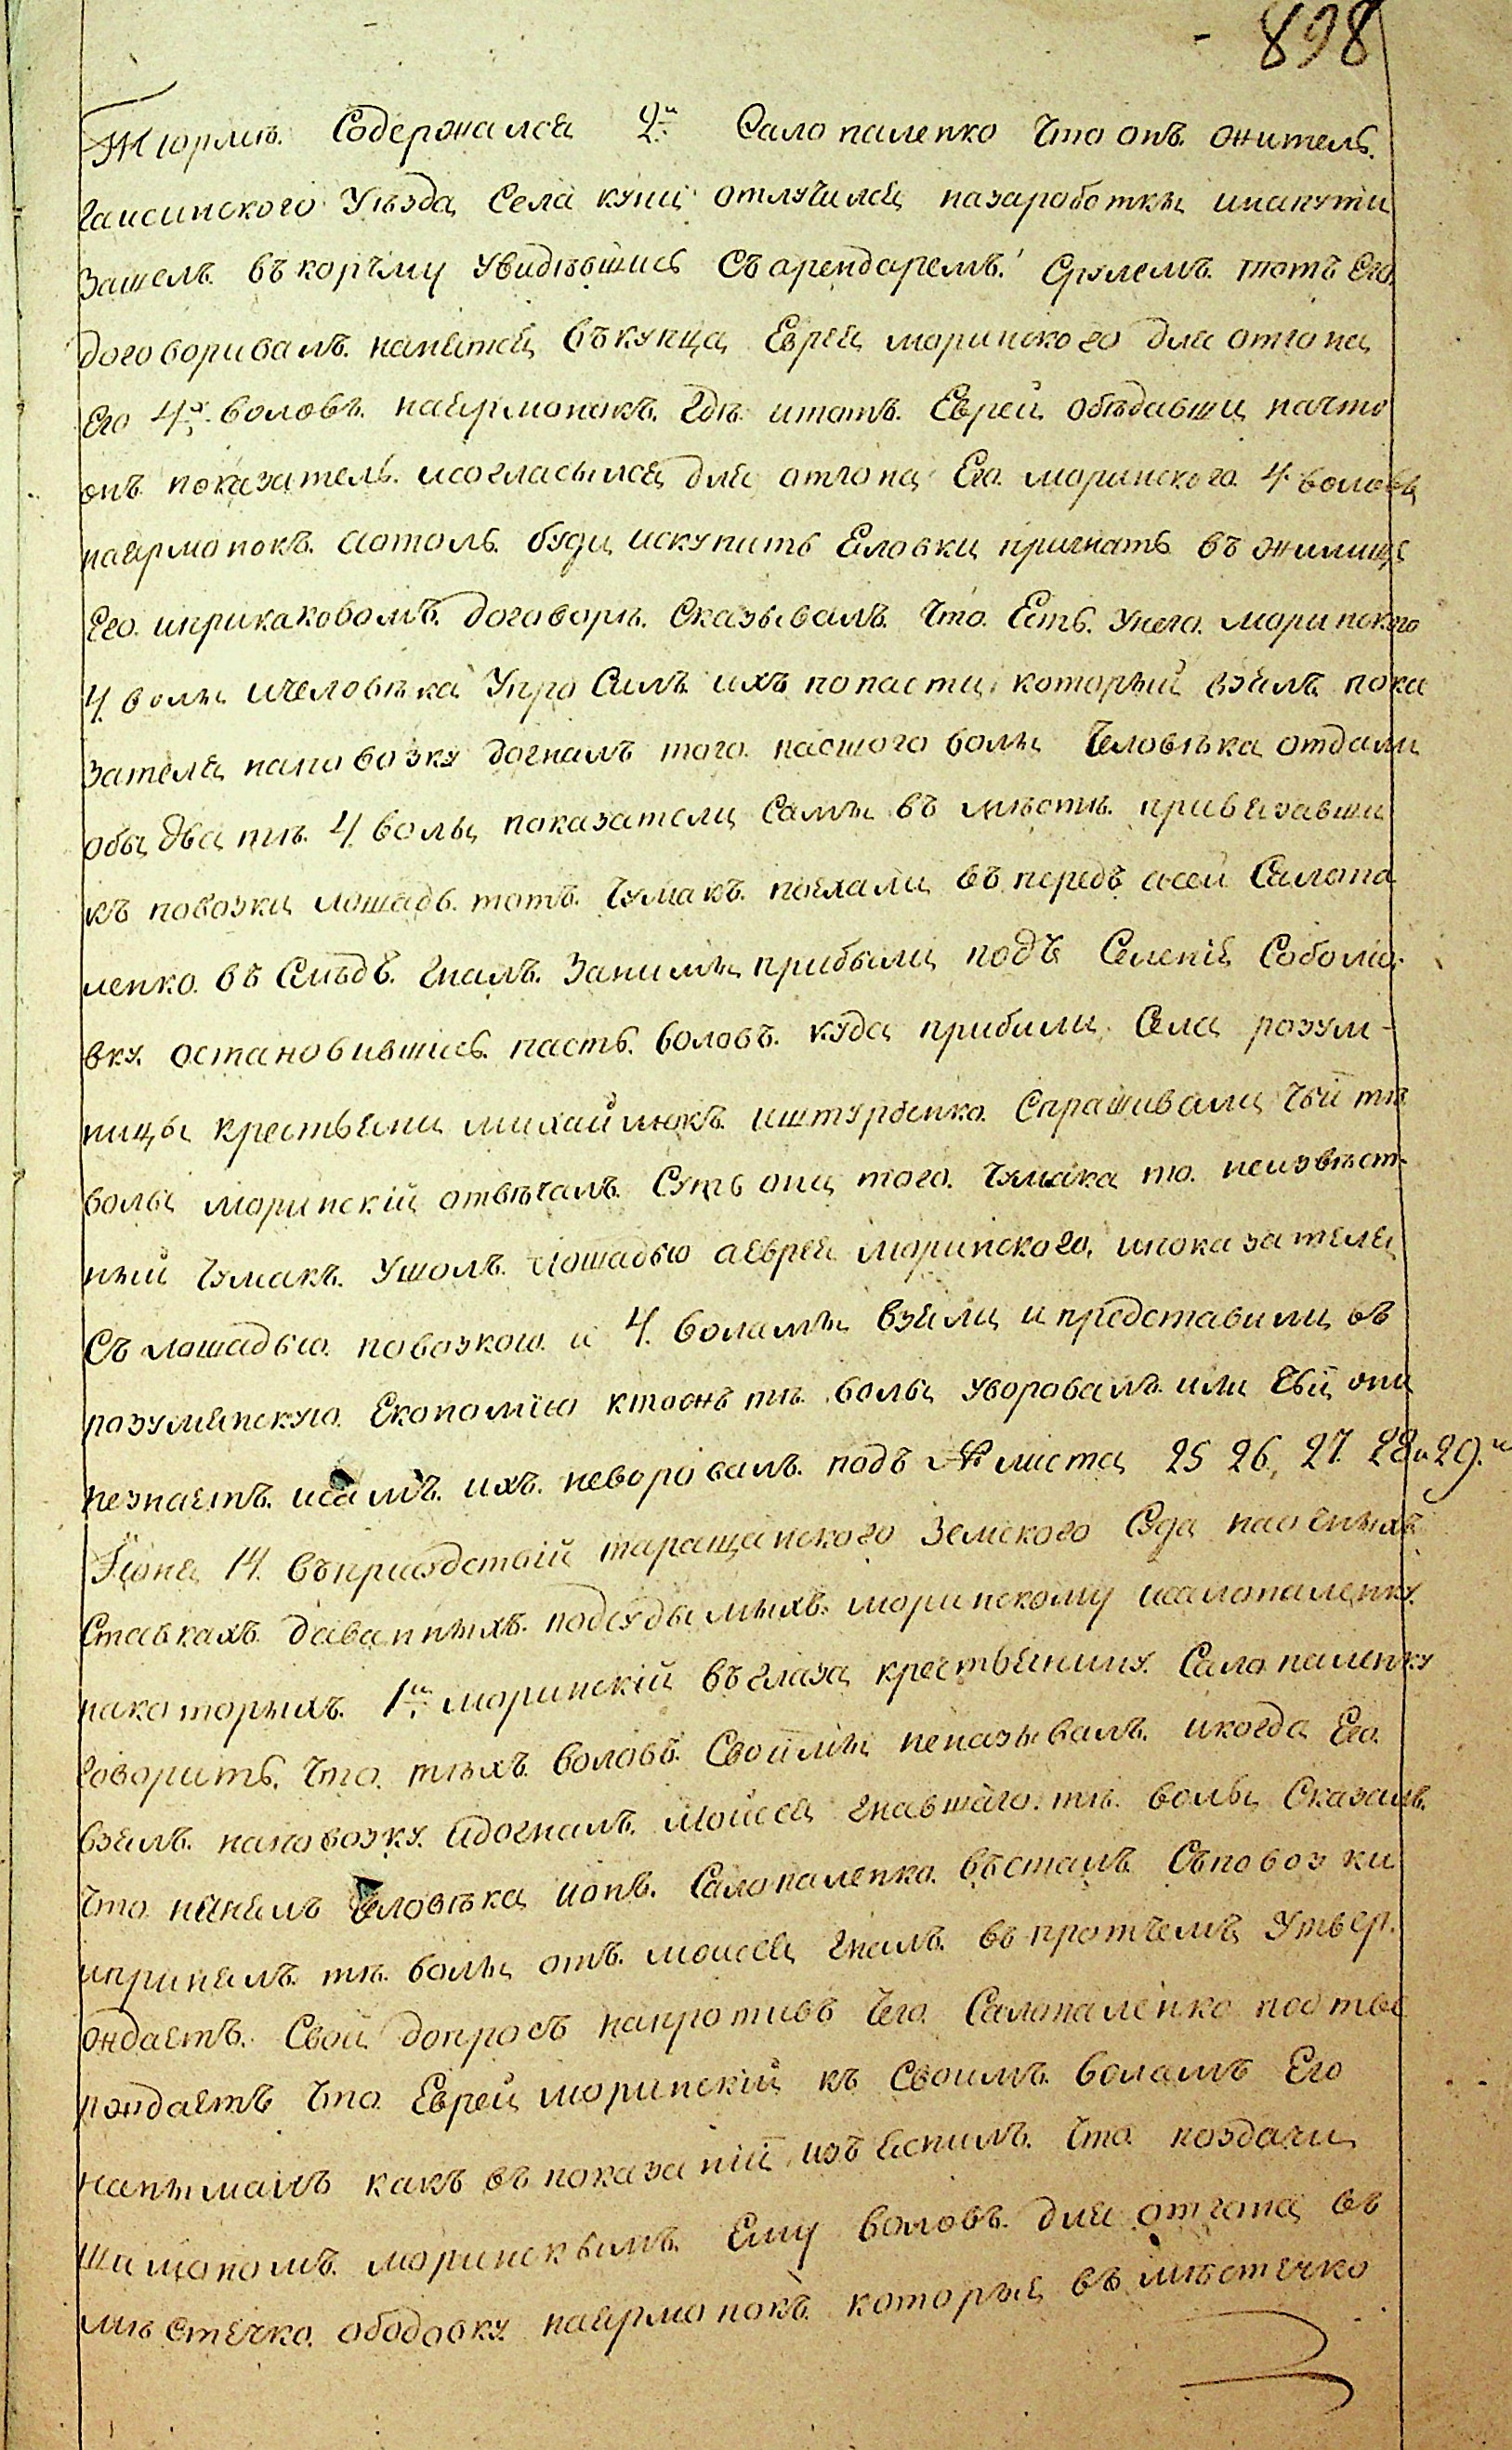 898
Тюрмѣ. Содержался 2й Салопаленко Что онъ. житель.
Гаисинского Уѣзда Села куни отлучился назаработки инапути
Зашелъ. въкорчму Увидѣвшись Съарендаремъ. Срулемъ. тотъ Его.
договоривалъ. нанятся въкупца Еврея моринского для отгона
Его 4х. воловъ. наярмонокъ. Гдѣ итотъ. Еврей обѣдавши начто
онъ показатель. исогласылся для отгона Его. моринского. 4. волова
наярмонокъ. аотоль. буди искупить Яловки пригнать въ жилище
Его. ипри каковомъ. договорѣ. Сказывалъ. Что. Есть. Унего. моринского
4 волы ичеловѣка Упросилъ ихъ попасти, который взялъ пока
зателя наповозку догналъ того. пасшого волы Человѣка отдали
обы два тѣ. 4 волы показатели Самы въ мѣстѣ. привязавши
къ повозки лошадь. тотъ. Чумакъ. поехали въ передъ асей Салопа
ленко. въ Слѣдъ. Гналъ. Занимы прибыли подъ Селеніе Соболіо-
вку. остановившись. пасть. воловъ. куда прибили. Села розум-
ницы крестьяни михайлюкъ. иштурбенко. Спрашивали Чьи тѣ
волы моринскій отвѣчалъ. Суть они того. Чумака то. неизвѣст-
ный Чумакъ. Ушолъ. лошадью аеврея моринского, ипоказателя
Съ лошадью. повозкою. и 4. воламы взяли и представили въ
розумянскую. Економію ктожъ тѣ. волы уворовалъ. или Чьи они
незнаетъ. исамъ. ихъ. неворовалъ. подъ № листа 25 26, 27. 28 и 29.м
Іюня 14. въприсудствіи таращанского Земского Суда наочныхъ
Ставкахъ. даванныхъ. подсудымыхъ. моринскому исалопаленку.
накоторыхъ. 1й. моринскій въглаза крестьянину. Салопаленку
Говорить. Что. тѣхъ воловъ. Своимы неназывалъ. икогда Его.
взялъ. наповозку. Идогналъ. Мойсея гнавшаго. тѣ. волы Сказалъ.
Что нанялъ Человѣка ионъ. Салопаленко. въсталъ Съповозки
ипринялъ. тѣ. волы отъ. мойсея Гналъ. въпротчемъ Утвер.
ждаетъ. Свой допросъ напротивъ Чего. Салопаленко подтве
рждаетъ Что. Еврей моринскій къ Своимъ. воламъ Его
нанымалъ какъ въпоказаніи изъяснилъ. Что. поздачи
шимономъ. моринскымъ. Ему воловъ. для отгона въ
мѣстечко. ободовку наярмонокъ. которые въ мѣстечко